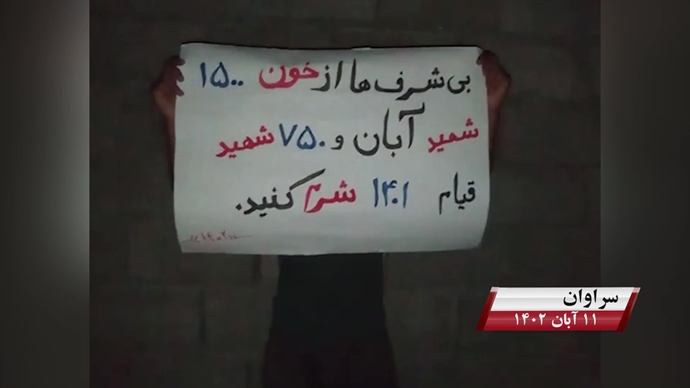 بی شرف ها از خون ۱۵۰۰
شهید آبان و ۷۵۰ شهید
قیام ۱۴۰۱ شرم کنید.
سراوان
۱۱ آبان ۱۴۰۲